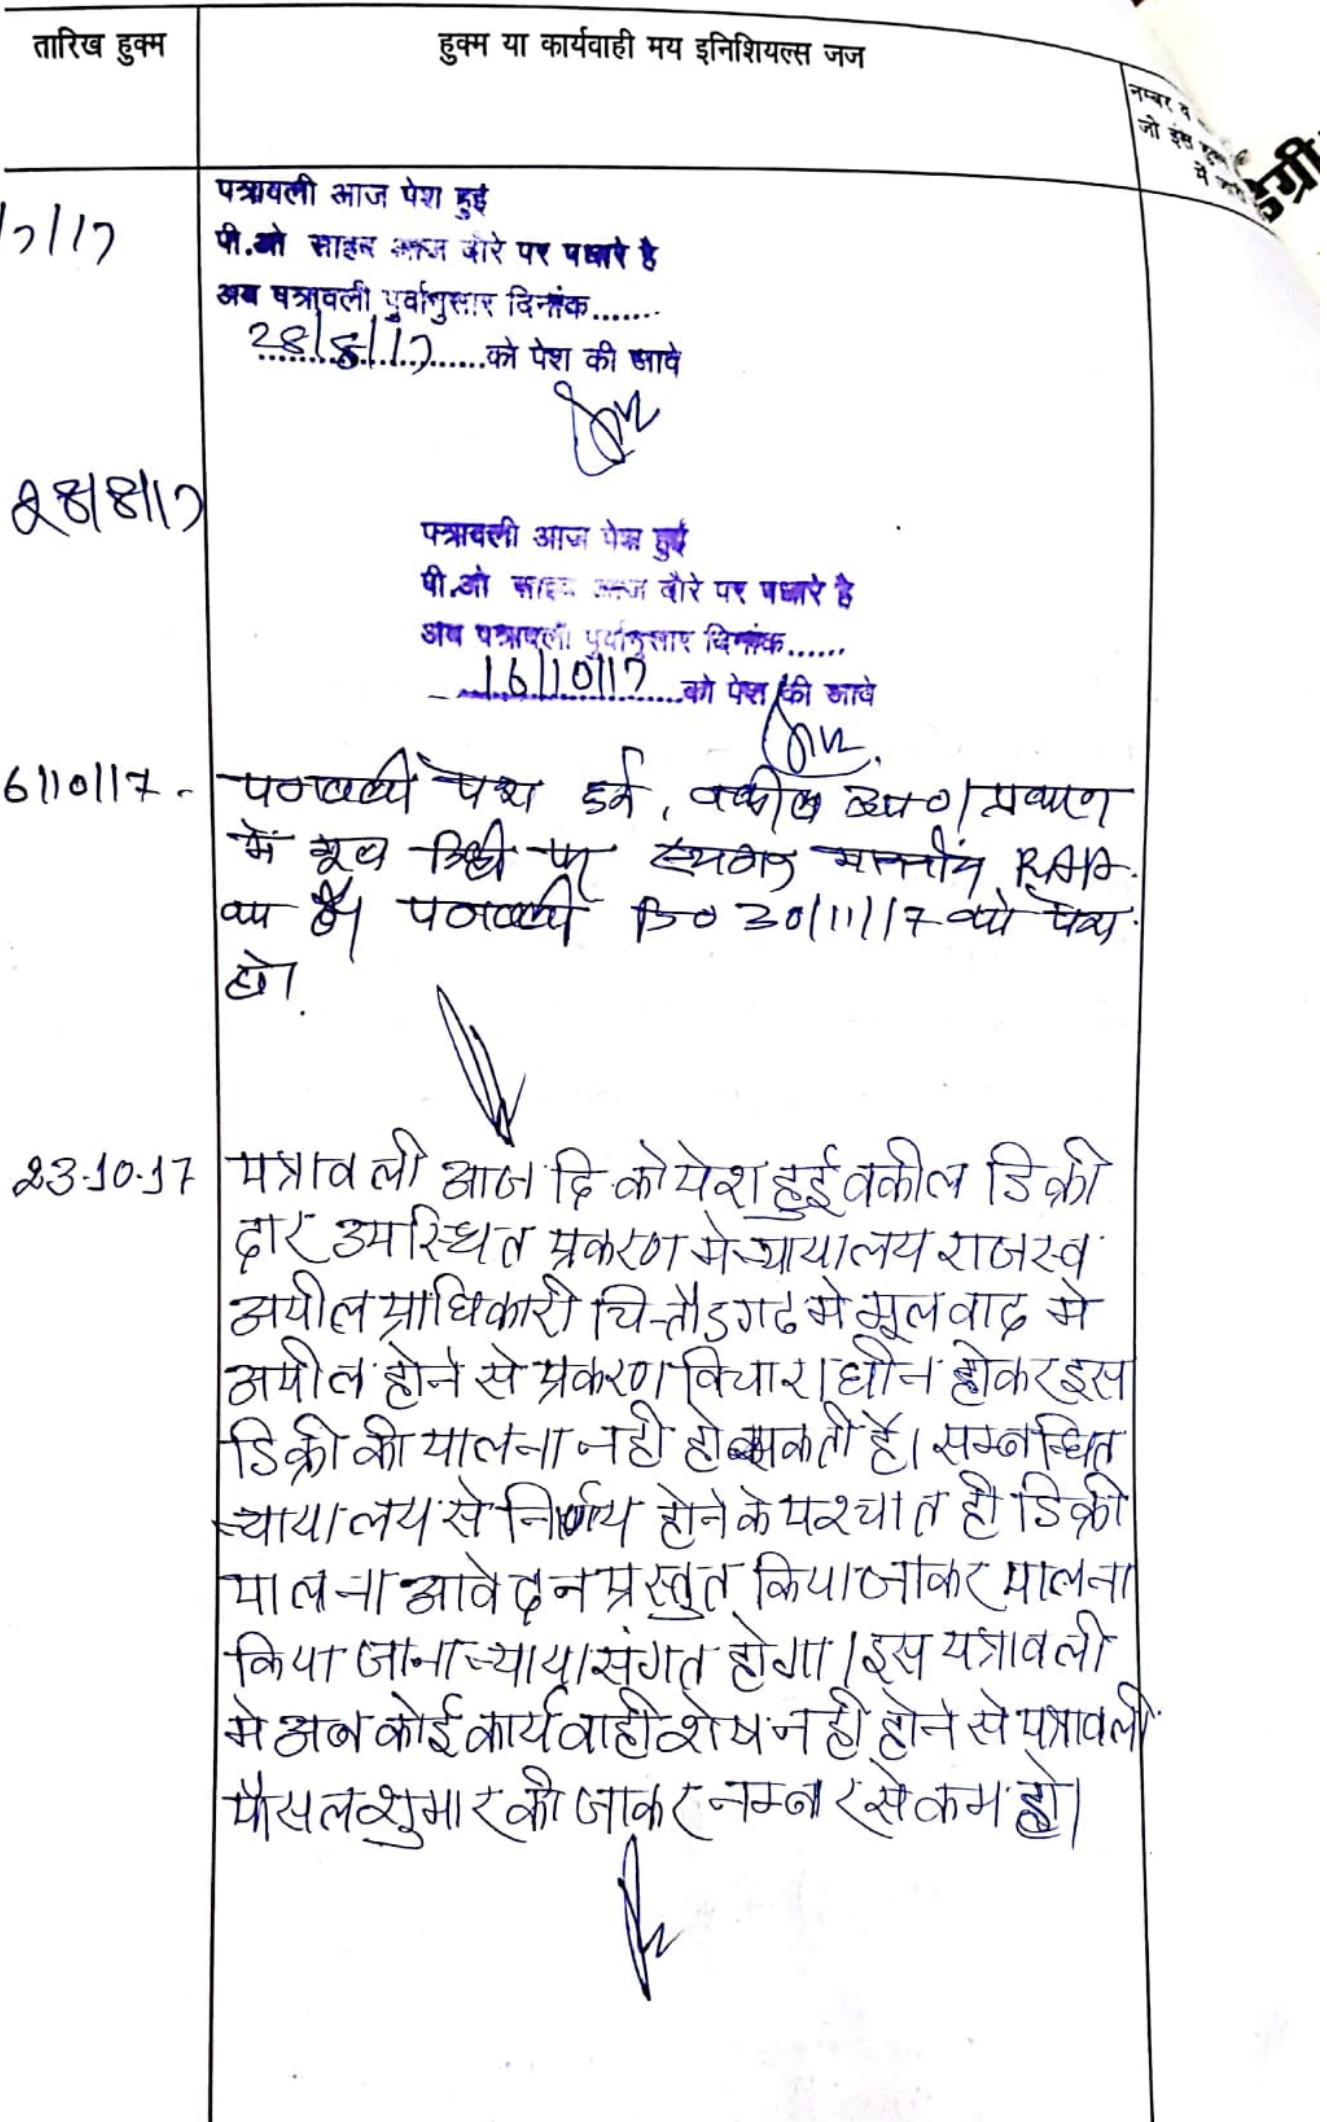 तारिख हुक्म
हुक्म या कार्यवाही मय इनिशियल्स जज
नम्बर व
जो इस हुक्म
में
/7/17
पत्रावली आज पेश हुई
पी.ओ साहब आज दौरे पर पधारे है
अब पत्रावली पुर्वानुसार दिनांक.......
28/8/17 को पेश की जावे
28/8/17
पत्रावली आज पेश हुई
पी.ओ साहब आज दौरे पर पधारे है
अब पत्रावली पुर्वानुसार दिनांक......
16/10/17 को पेश की जावे
6/10/17
पत्रावली पेश हुई, वकील उप०।
में मूल पर स्थगन RAA
का है। पत्रावली दि० 30/11/17 को पेश
हो।
23.10.17
पत्रावली आज दि को पेश हुई वकील डिक्री
दार उपस्थित प्रकरण मे न्यायालय राजस्व
अपील प्राधिकारी चित्तौडगढ मे मूल वाद मे
अपील होने से प्रकरण विचाराधीन होकर इस
डिक्री की पालना नही हो सकती है। सम्बन्धित
न्यायालय से निर्णय होने के पश्चात ही डिक्री
पालना आवेदन प्रस्तुत किया जाकर पालना
किया जाना न्याय संगत होगा। इस पत्रावली
मे अब कोई कार्यवाही शेष नही होने से पत्रावली
फैसल शुमार की जाकर नम्बर से कम हो।